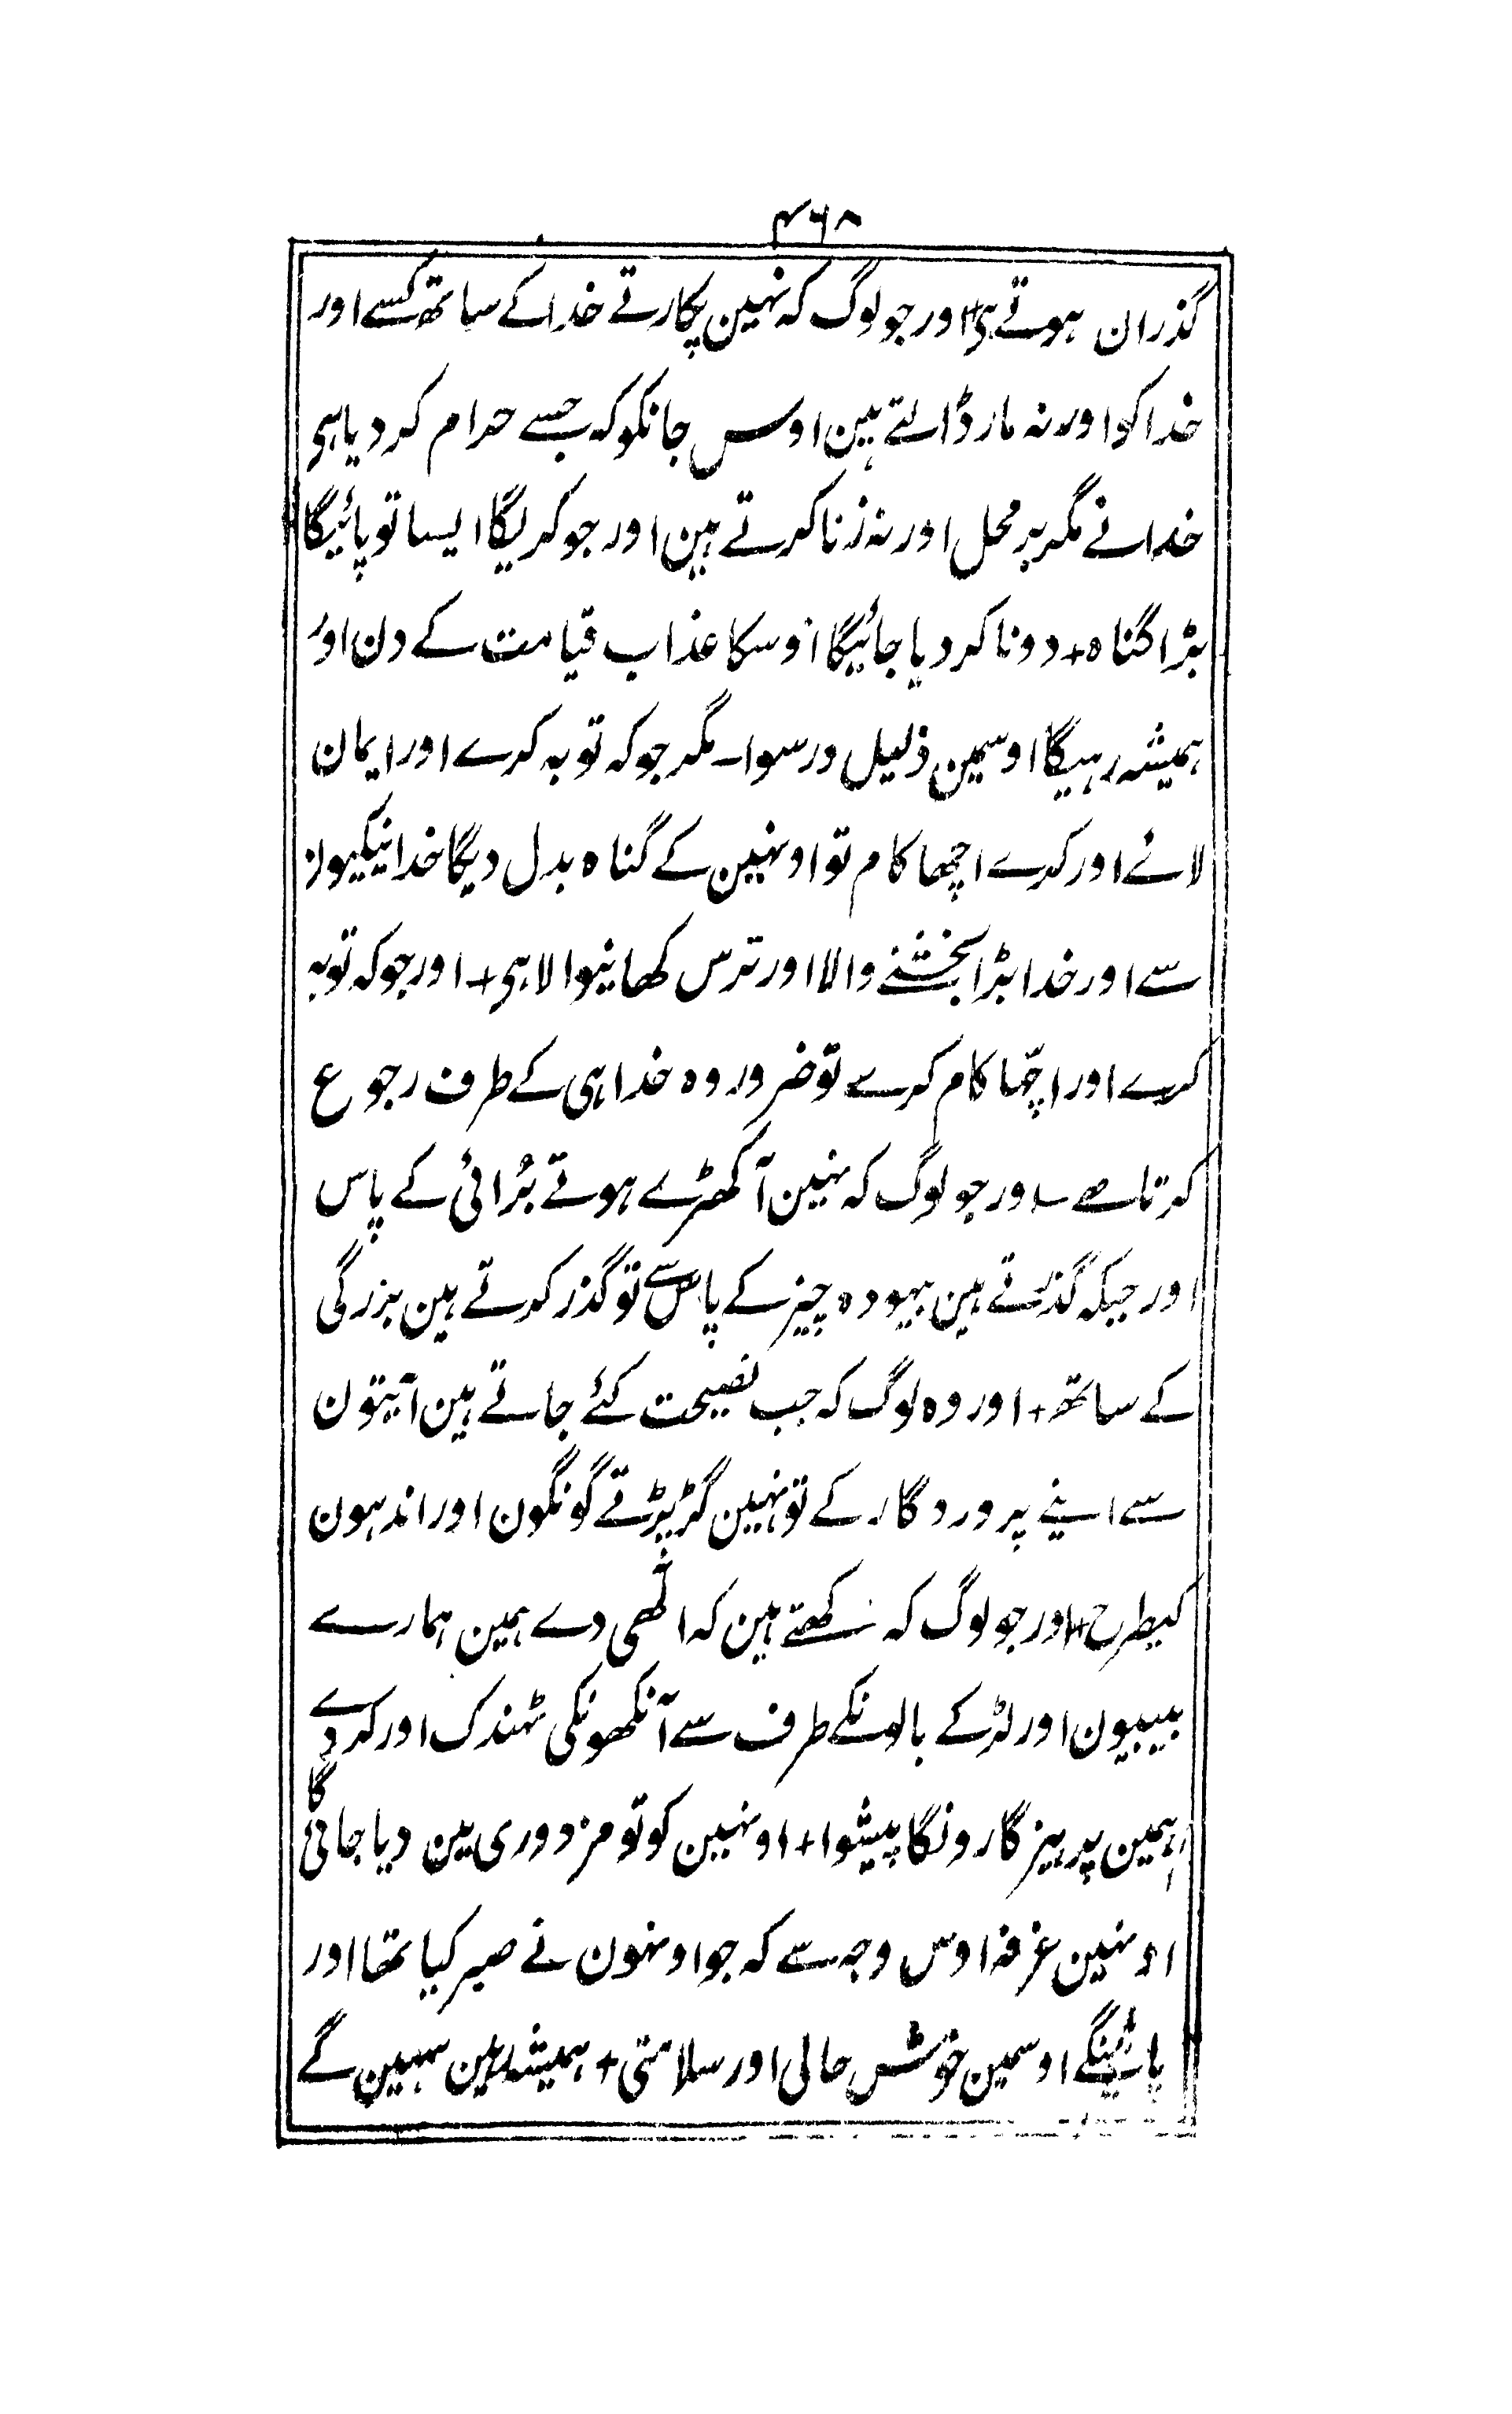 ۴۶۸
گذران ہوتے ہی+اور جو لوگ کہ نہین پکارتے خدا کے ساتھ کسے اور
خدا کو اور نہ مار ڈالتے ہین اوس جانکو کہ جسے حرام کر دیا ہی
خدا نے مگر بر محل اور نہ زنا کرتے ہین اور جو کریگا ایسا تو پائیگا
بڑا گناہ+ دونا کر دیا جائیگا اوسکا عذاب قیامت کے دن اور
ہمیشہ رہیگا اوسمین ذلیل و رسوا۔ مگر جو کہ توبہ کرے اور ایمان
لائے اور کرے اچھا کام تو اونہین کے گناہ بدل دیگا خدا نیکیون
سے اور خدا بڑا بخشنے والا اور ترس کھانیوالا ہی+ اور جو کہ توبہ
کرے اور اچّھا کام کرے تو ضرور وہ خدا ہی کے طرف رجوع
کرتا ہے۔ اور جو لوگ کہ نہین آ کھڑے ہوتے بُرائی کے پاس
اور جبکہ گذرتے ہین بیہودہ چیز کے پاس سے تو گذر کرتے ہین بزرگی
کے ساتھ+ اور وہ لوگ کہ جب نصیحت کئے جاتے ہین آیتون
سے اپنے پروردگار کے تو نہین گر پڑتے گونگون اور اندہون
کیطرح+ اور جو لوگ کہ کھتے ہین کہ الٰھی دے ہمین ہمارے
بیبیون اور لڑکے بالونکے طرف سے آنکھونکی ٹھنڈک اور کر دے
ہمین پرہیزگارونکا پیشوا+ اونہین کو تو مزدوری مین دیا جائیگا
اونہین غرفہ اوس وجہ سے کہ جو اونہون نے صبر کیا تھا اور
پائینگے اوسمین خوش حالی اور سلامتی+ ہمیشہ رہین سہین گے